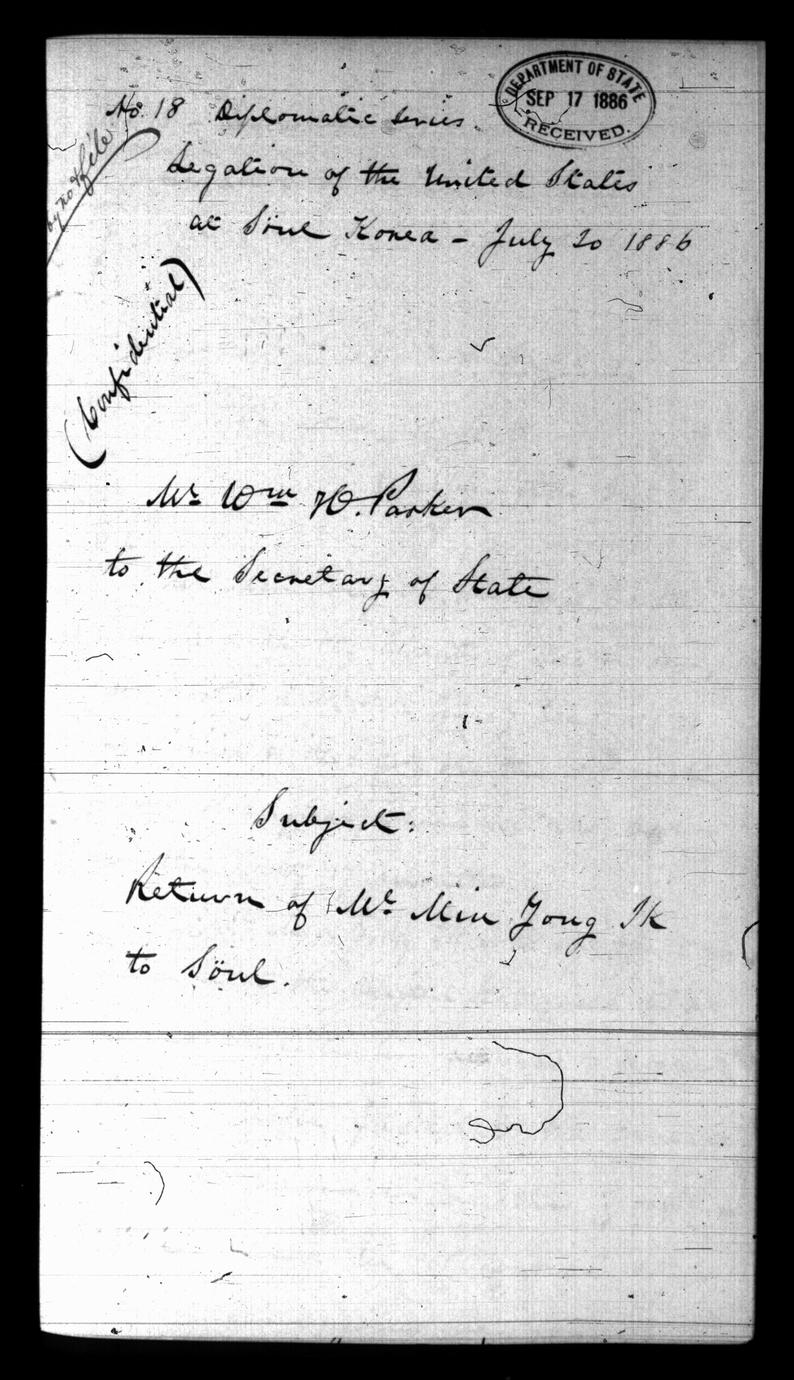 DEPARTMENT OF STATE
SEP 17 1886
RECEIVED.
No. 18 Diplomatic Series.
Legation of the United States
at Söul Korea - July 20 1886
file
(Confidential)
Mr Wm H. Parker
to the Secretary of State
Subject:
Return of Mr Min Yong Ik
to Söul.